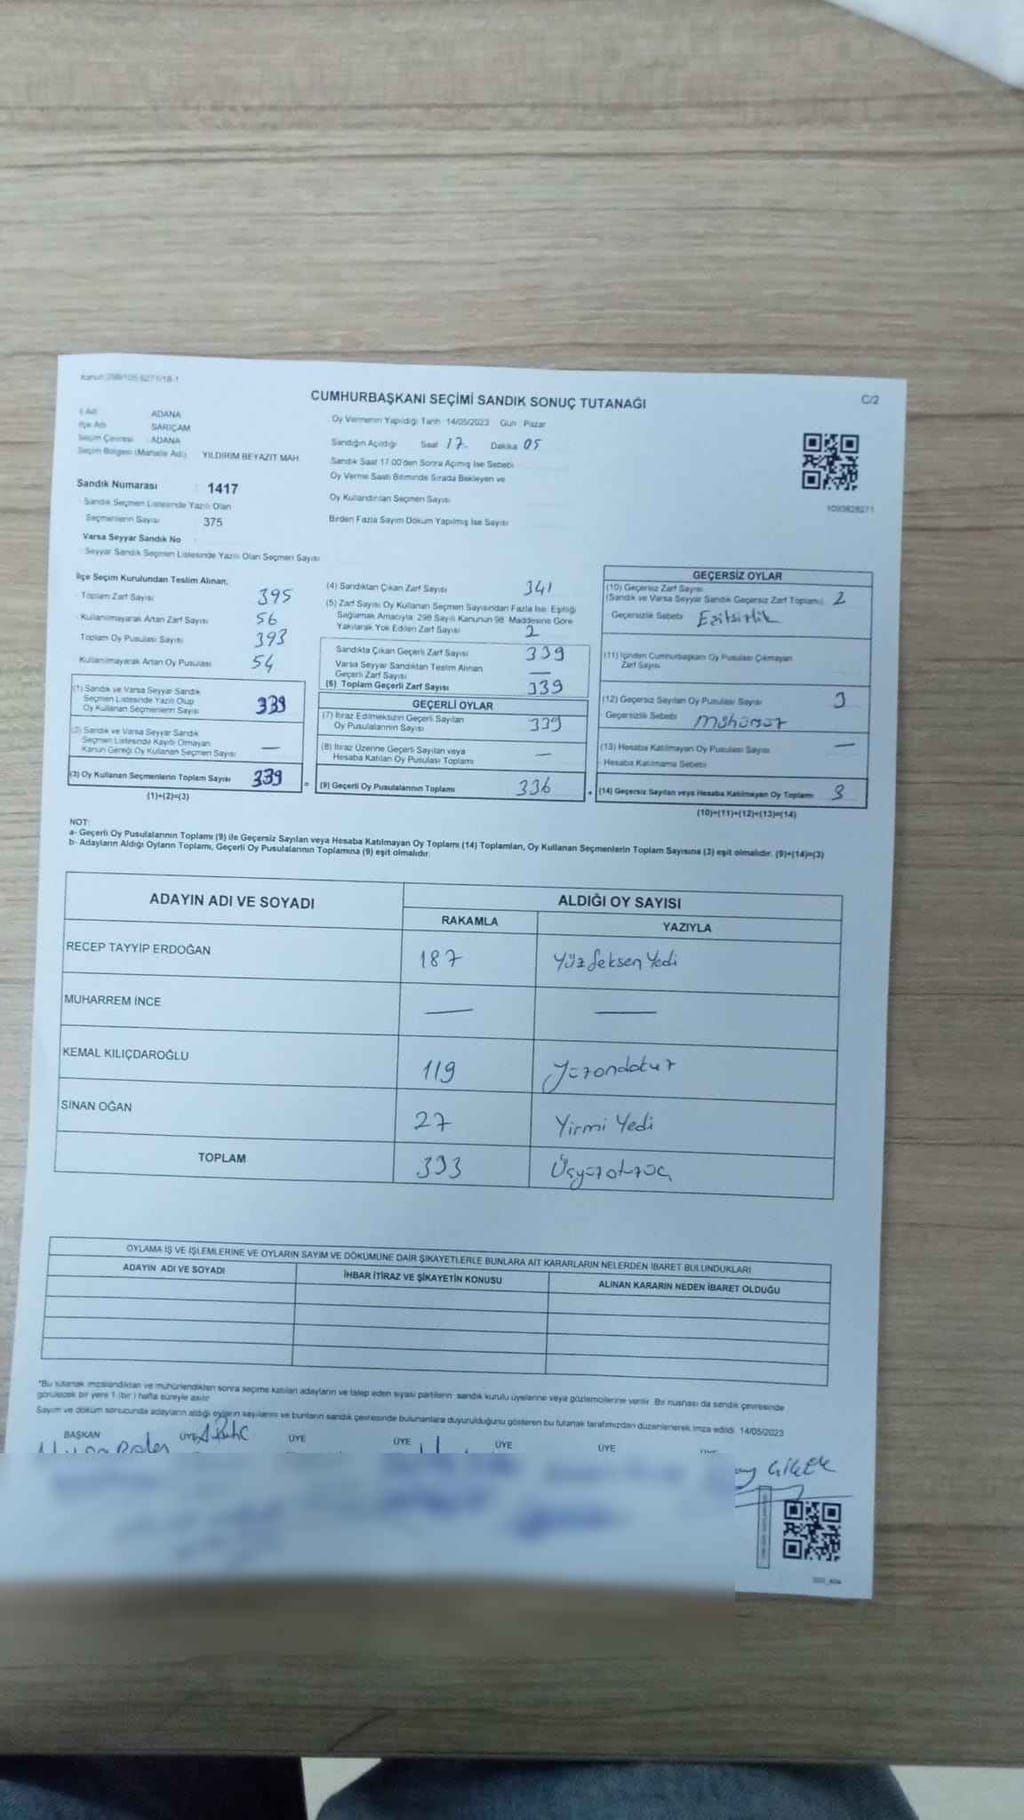 Kanun:298/105-6271/18-1
C/2
CUMHURBAŞKANI SEÇİMİ SANDIK SONUÇ TUTANAĞI
İl Adı ADANA
İlçe Adı SARIÇAM
Seçim Çevresi ADANA
Seçim Bölgesi (Mahalle Adı) YILDIRIM BEYAZIT MAH.
Sandık Numarası : 1417
Sandık Seçmen Listesinde Yazılı Olan
Seçmenlerin Sayısı 375
Varsa Seyyar Sandık No
Seyyar Sandık Seçmen Listesinde Yazılı Olan Seçmen Sayısı
Oy Vermenin Yapıldığı Tarih 14/05/2023 Gün Pazar
Sandığın Açıldığı Saat 17 Dakika 05
Sandık Saat 17.00'den Sonra Açılmış İse Sebebi
Oy Verme Saati Bitiminde Sırada Bekleyen ve
Oy Kullandırılan Seçmen Sayısı
Birden Fazla Sayım Döküm Yapılmış İse Sayısı
İlçe Seçim Kurulundan Teslim Alınan;
Toplam Zarf Sayısı 395
Kullanılmayarak Artan Zarf Sayısı 56
Toplam Oy Pusulası Sayısı 393
Kullanılmayarak Artan Oy Pusulası 54
(1) Sandık ve Varsa Seyyar Sandık
Seçmen Listesinde Yazılı Olup
Oy Kullanan Seçmenlerin Sayısı 339
(2) Sandık ve Varsa Seyyar Sandık
Seçmen Listesinde Kayıtlı Olmayan
Kanun Gereği Oy Kullanan Seçmen Sayısı —
(3) Oy Kullanan Seçmenlerin Toplam Sayısı 339
(1)+(2)=(3)
(4) Sandıktan Çıkan Zarf Sayısı 341
(5) Zarf Sayısı Oy Kullanan Seçmen Sayısından Fazla İse, Eşitliği
Sağlamak Amacıyla, 298 Sayılı Kanunun 98. Maddesine Göre
Yakılarak Yok Edilen Zarf Sayısı 2
Sandıkta Çıkan Geçerli Zarf Sayısı 339
Varsa Seyyar Sandıktan Teslim Alınan
Geçerli Zarf Sayısı —
(6) Toplam Geçerli Zarf Sayısı 339
GEÇERLİ OYLAR
(7) İtiraz Edilmeksizin Geçerli Sayılan
Oy Pusulalarının Sayısı 339
(8) İtiraz Üzerine Geçerli Sayılan veya
Hesaba Katılan Oy Pusulası Toplamı —
= (9) Geçerli Oy Pusulalarının Toplamı 336
GEÇERSİZ OYLAR
(10) Geçersiz Zarf Sayısı
(Sandık ve Varsa Seyyar Sandık Geçersiz Zarf Toplamı) 2
Geçersizlik Sebebi Eşitsizlik
(11) İçinden Cumhurbaşkanı Oy Pusulası Çıkmayan
Zarf Sayısı
(12) Geçersiz Sayılan Oy Pusulası Sayısı 3
Geçersizlik Sebebi mühürsüz
(13) Hesaba Katılmayan Oy Pusulası Sayısı —
Hesaba Katılmama Sebebi
+ (14) Geçersiz Sayılan veya Hesaba Katılmayan Oy Toplamı 3
(10)+(11)+(12)+(13)=(14)
NOT:
a- Geçerli Oy Pusulalarının Toplamı (9) ile Geçersiz Sayılan veya Hesaba Katılmayan Oy Toplamı (14) Toplamları, Oy Kullanan Seçmenlerin Toplam Sayısına (3) eşit olmalıdır. (9)+(14)=(3)
b- Adayların Aldığı Oyların Toplamı, Geçerli Oy Pusulalarının Toplamına (9) eşit olmalıdır.
ADAYIN ADI VE SOYADI ALDIĞI OY SAYISI
RAKAMLA YAZIYLA
RECEP TAYYİP ERDOĞAN 187 Yüz Seksen Yedi
MUHARREM İNCE — —
KEMAL KILIÇDAROĞLU 119 Yüzondokuz
SİNAN OĞAN 27 Yirmi Yedi
TOPLAM 333 Üçyüzotuzüç
OYLAMA İŞ VE İŞLEMLERİNE VE OYLARIN SAYIM VE DÖKÜMÜNE DAİR ŞİKAYETLERLE BUNLARA AİT KARARLARIN NELERDEN İBARET BULUNDUKLARI
ADAYIN ADI VE SOYADI İHBAR İTİRAZ VE ŞİKAYETİN KONUSU ALINAN KARARIN NEDEN İBARET OLDUĞU
*Bu tutanak imzalandıktan ve mühürlendikten sonra seçime katılan adayların ve talep eden siyasi partilerin sandık kurulu üyelerine veya gözlemcilerine verilir. Bir nüshası da sandık çevresinde
görülecek bir yere 1 (bir ) hafta süreyle asılır
Sayım ve döküm sonucunda adayların aldığı oyların sayılarını ve bunların sandık çevresinde bulunanlara duyurulduğunu gösteren bu tutanak tarafımızdan düzenlenerek imza edildi. 14/05/2023
BAŞKAN ÜYE ÜYE ÜYE ÜYE ÜYE